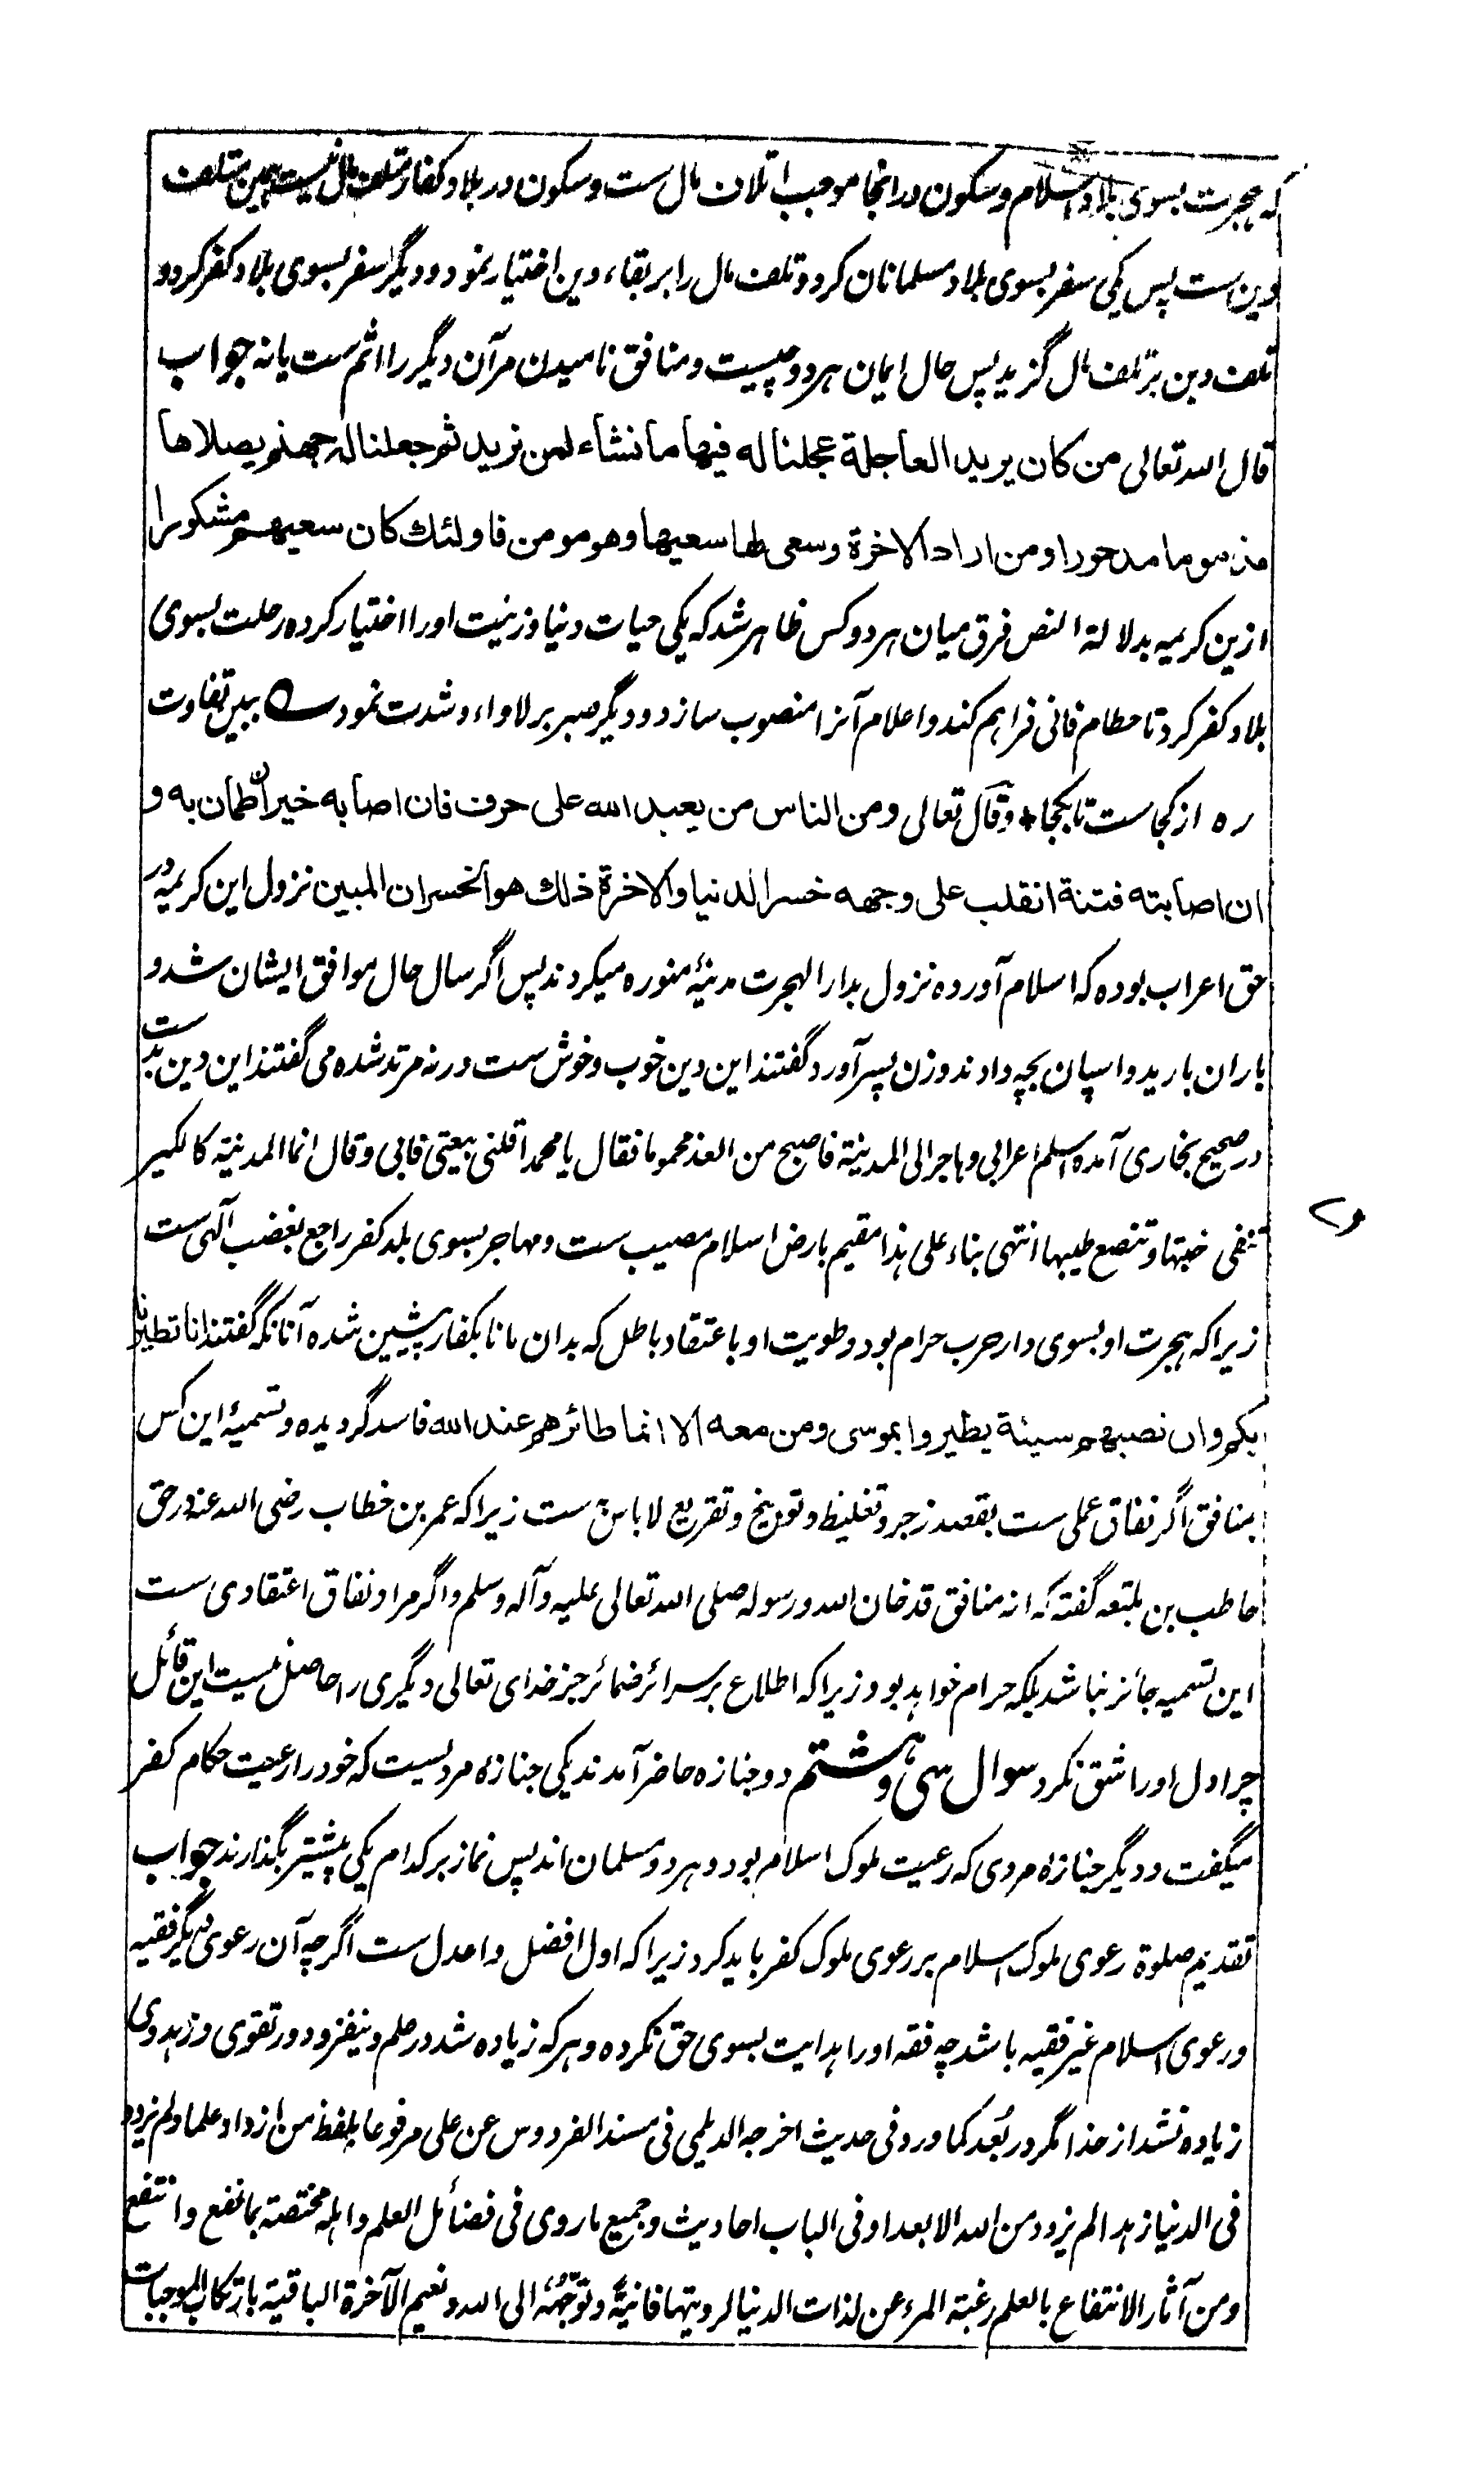 که هجرت بسوی بلاد اسلام و سکون در انجا موجب اتلاف مال ست و سکون در بلاد کفار متلف مال نیست همین متلف
دین ست پس یکی سفر بسوی بلاد مسلمانان کرد و تلف مال را بر بقاء دین اختیار نمود و دیگر سفر بسوی بلاد کفر کرد و
تلف دین بر تلف مال گزید پس حال ایمان هر دو چیست و منافق نامیدن مر آن دیگر را اثم ست یا نه جواب
قال الله تعالی من کان یرید العاجلة عجلنا له فیها ما نشاء لمن نرید ثم جعلنا له جهنم یصلاها
مذموما مدحورا ومن اراد الاخرة وسعی لها سعیها وهو مومن فاولئك کان سعیهم مشکورا
ازین کریمه بدلالة النص فرق میان هر دو کس ظاهر شد که یکی حیات دنیا و زینت او را اختیار کرده رحلت بسوی
بلاد کفر کرد تا حطام فانی فراهم کند و اعلام آنرا منصوب سازد و دیگر صبر بر لاواء و شدت نمود ـه ببین تفاوت
ره از کجاست تا بکجا * وقال تعالی ومن الناس من یعبد الله علی حرف فان اصابه خیر اطمان به و
ان اصابته فتنة انقلب علی وجهه خسر الدنیا والاخرة ذلك هو الخسران المبین نزول این کریمه در
حق اعراب بوده که اسلام آورده نزول بدار الهجرت مدینۀ منوره میکردند پس اگر سال حال موافق ایشان شد و
باران بارید و اسپان بچه دادند و زن پسر آورد گفتند این دین خوب و خوش ست ورنه مرتد شده می گفتند این دین بد ست
در صحیح بخاری آمده اسلم اعرابی وهاجر الی المدینة فاصبح من الغد محموما فقال یا محمد اقلنی بیعتی فابی وقال انما المدینة کالکیر
تنفی خبثها وتنصع طیبها انتهی بناء علی هذا مقیم بارض اسلام مصیب ست و مهاجر بسوی بلد کفر راجع بغضب آلهی ست
زیرا که هجرت او بسوی دار حرب حرام بود و طویت او باعتقاد باطل که بدان مانا بکفار پیشین شده آنانکه گفتند انا تطیرنا
بکم وان تصبهم سیئة یطیروا بموسی ومن معه الا انما طائرهم عند الله فاسد گردیده و تسمیۀ این کس
بمنافق اگر نفاق عملی ست بقصد زجر و تغلیظ و توبیخ و تقریع لا باس به ست زیرا که عمر بن خطاب رضی الله عنه در حق
حاطب بن بلتعه گفته که انه منافق قد خان الله ورسوله صلی الله تعالی علیه وآله وسلم و اگر مراد نفاق اعتقادی ست
این تسمیه جائز نباشد بلکه حرام خواهد بود زیرا که اطلاع بر سرائر ضمائر جز خدای تعالی دیگری را حاصل نیست این قائل
چرا دل او را شق نکرد سوال سی و هشتم دو جنازه حاضر آمدند یکی جنازۀ مردیست که خود را رعیت حکام کفر
میگفت و دیگر جنازۀ مردی که رعیت ملوک اسلام بود و هر دو مسلمان اند پس نماز بر کدام یکی پیشتر بگذارند جواب
تقدیم صلوة رعوی ملوک اسلام بر رعوی ملوک کفر باید کرد زیرا که اول افضل و اعدل ست اگرچه آن رعوی دیگر فقیه
و رعوی اسلام غیر فقیه باشد چه فقه او را هدایت بسوی حق نکرده و هر که زیاده شد در علم و نیفزود در تقوی و زهد وی
زیاده نشد از خدا مگر در بُعد کما ورد فی حدیث اخرجه الدیلمی فی مسند الفردوس عن علی مرفوعا بلفظ من ازداد علما ولم یزدد
فی الدنیا زهدا لم یزدد من الله الا بعدا وفی الباب احادیث وجمیع ما روی فی فضائل العلم واهله مختصة بما نفع وانتفع
ومن آثار الانتفاع بالعلم رغبة المرء عن لذات الدنیا لرویتها فانیة وتوجهه الی الله ونعیم الآخرة الباقیة بارتکاب الموجبات